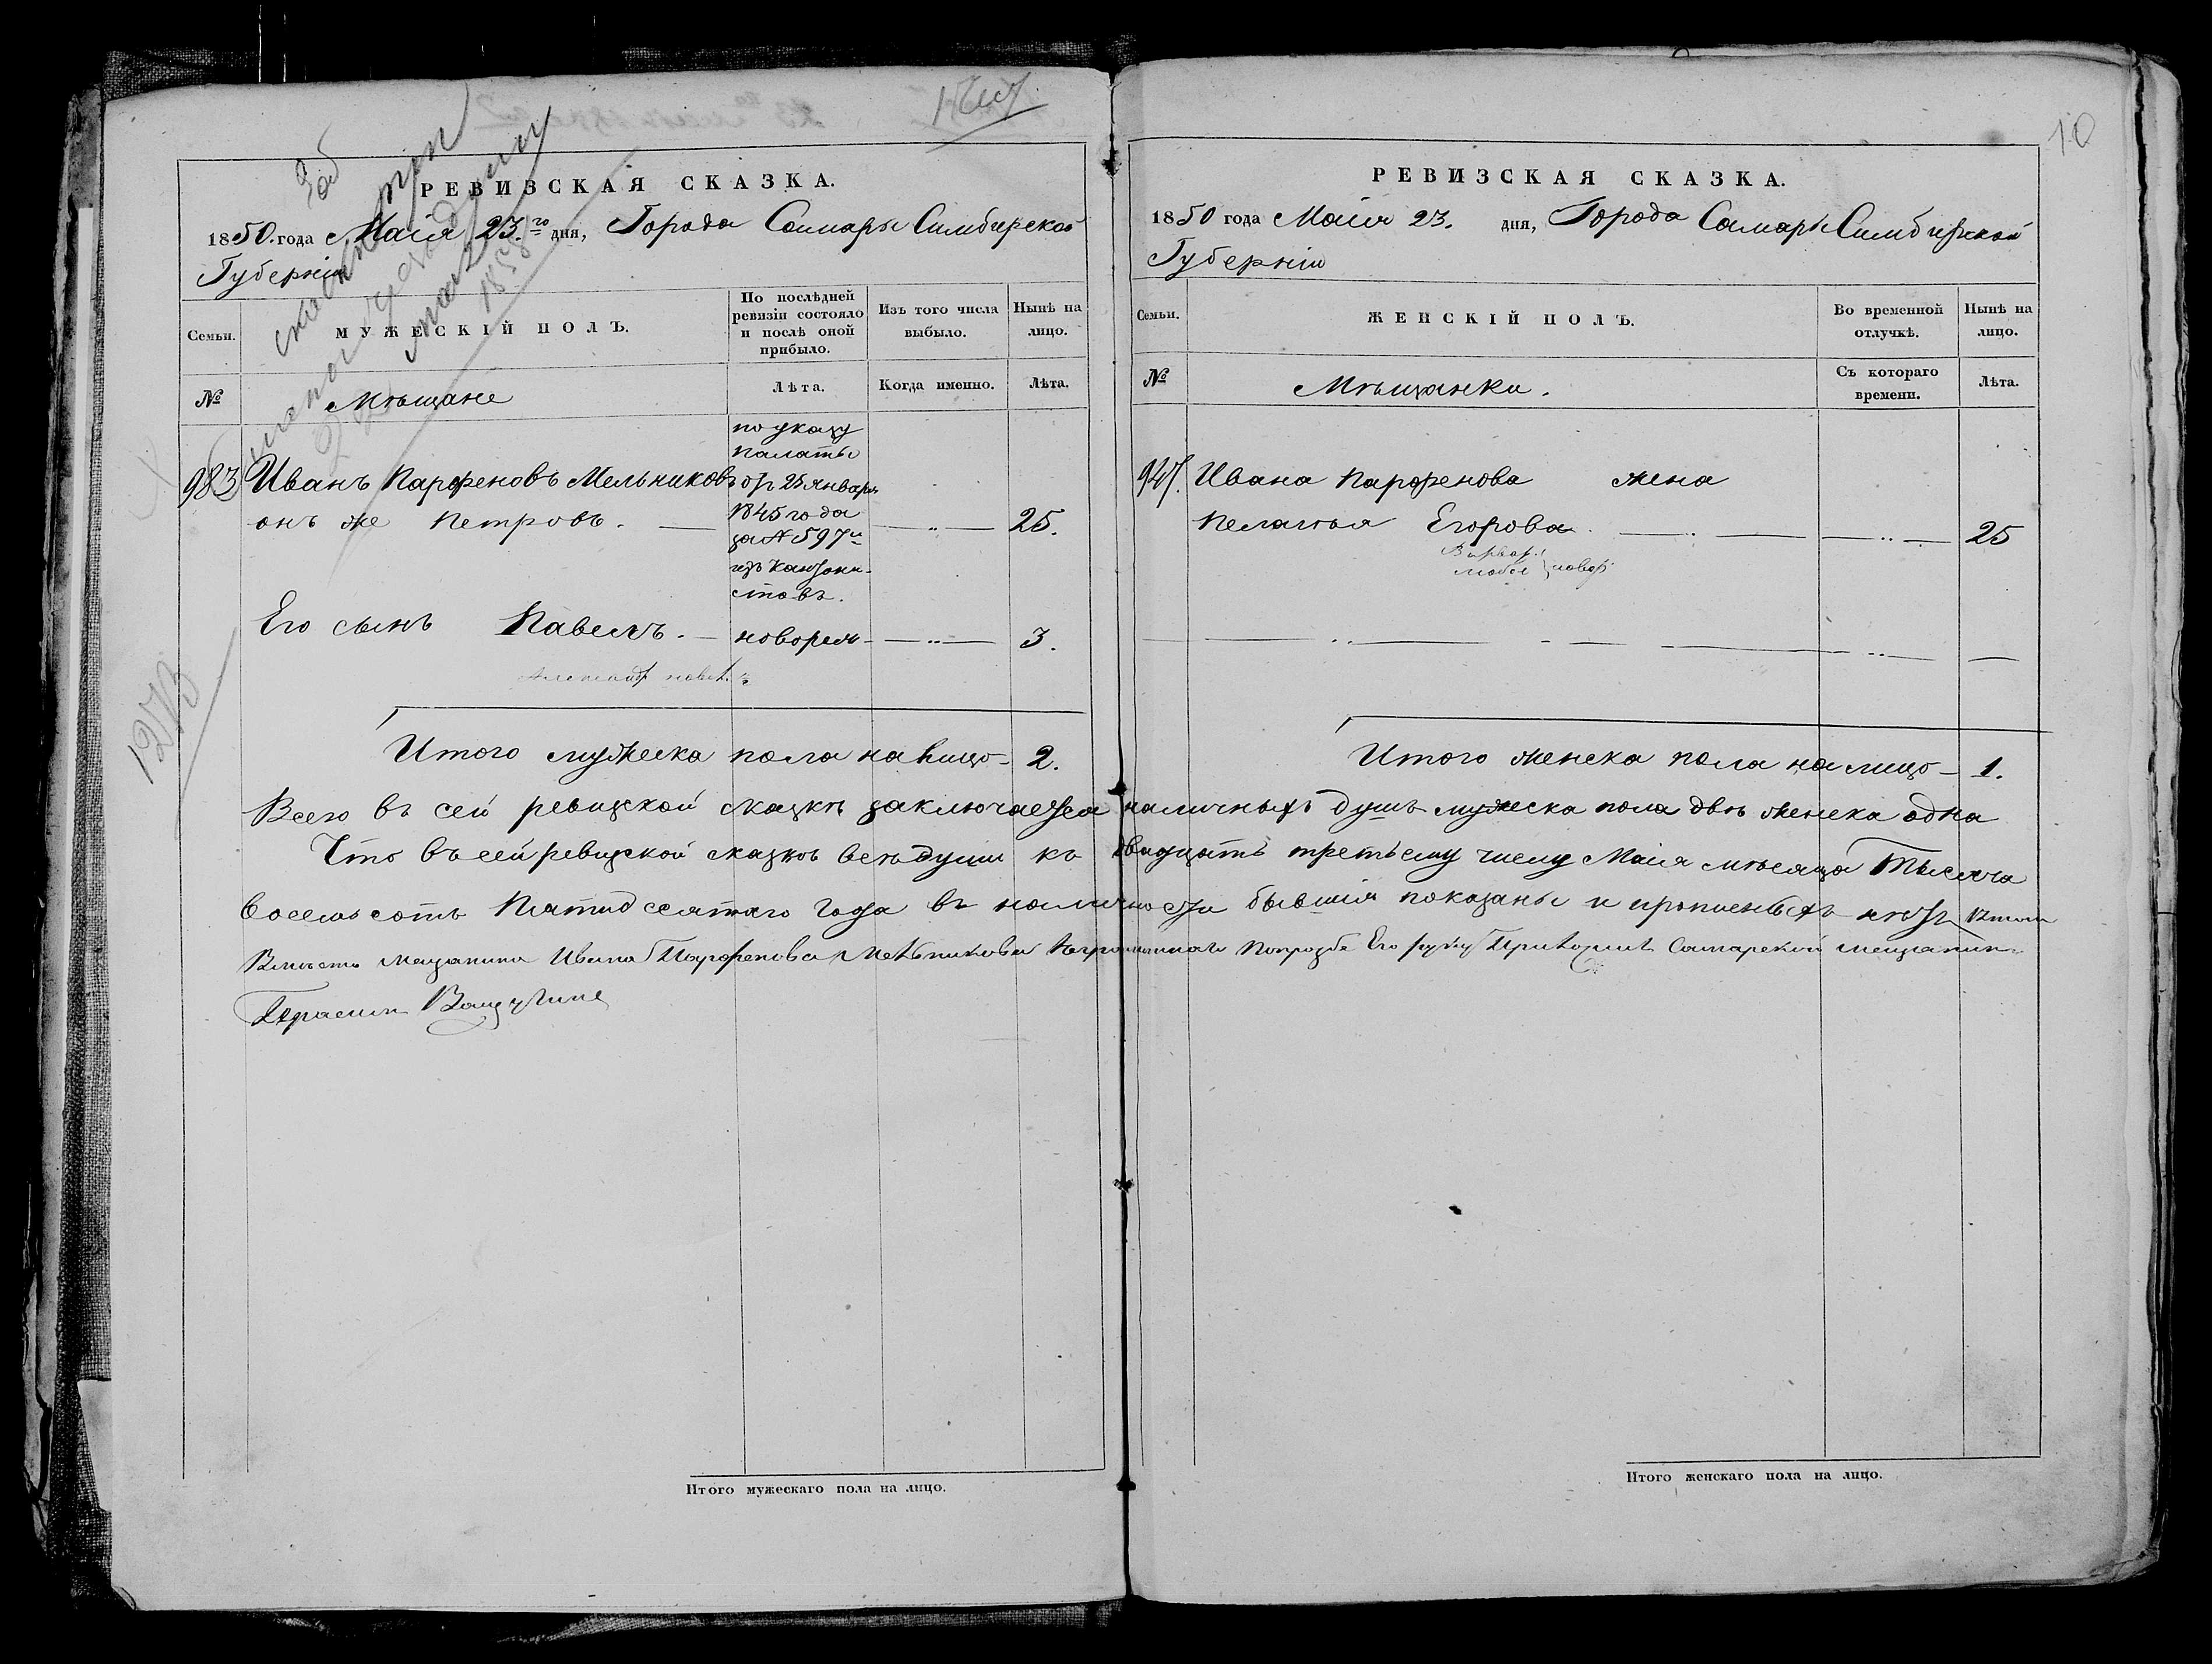 10
РЕВИЗСКАЯ СКАЗКА.
1850. года Маія 23.го дня, Города Самары Симбирской
Губерніи
Семьи.
МУЖЕСКІЙ ПОЛЪ.
По послѣдней ревизіи состояло и послѣ оной прибыло.
Изъ того числа выбыло.
Нынѣ на лицо.
№
Мѣщане
Лѣта.
Когда именно.
Лѣта.
983
Иванъ Парфеновъ Мельниковъ
онъ же Петровъ.
по указу
палаты
от 25 января
1845 года
за № 597
изъ кантони-
стовъ.
25.
Его сынъ Павелъ. новорож 3.
Итого мужеска пола на лицо 2.
РЕВИЗСКАЯ СКАЗКА.
1850 года Маія 23. дня, Города Самары Симбирской
Губерніи
Семьи.
ЖЕНСКІЙ ПОЛЪ.
Во временной отлучкѣ.
Нынѣ на лицо.
№
Мѣщанки.
Съ котораго времени.
Лѣта.
947.
Ивана Парфенова жена
Пелагѣя Егорова. 25
Итого женска пола на лицо 1.
Всего въ сей ревизской сказкѣ заключается наличныхъ душъ мужеска пола двѣ женска одна
Что въ сей ревизской сказкѣ всѣ души къ двадцать третьему числу Маія мѣсяца Тысяча
восемь сотъ Пятидесятаго года въ наличности бывшія показаны и прописныхъ нѣтъ
мещанина Ивана Парфенова Мельникова Его руку Приложилъ Самарской мещанин
Герасим
Итого мужескаго пола на лицо.
Итого женскаго пола на лицо.